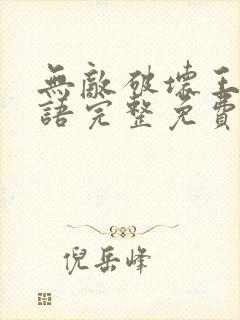 無敵破壞王
語完整免費
倪岳峰